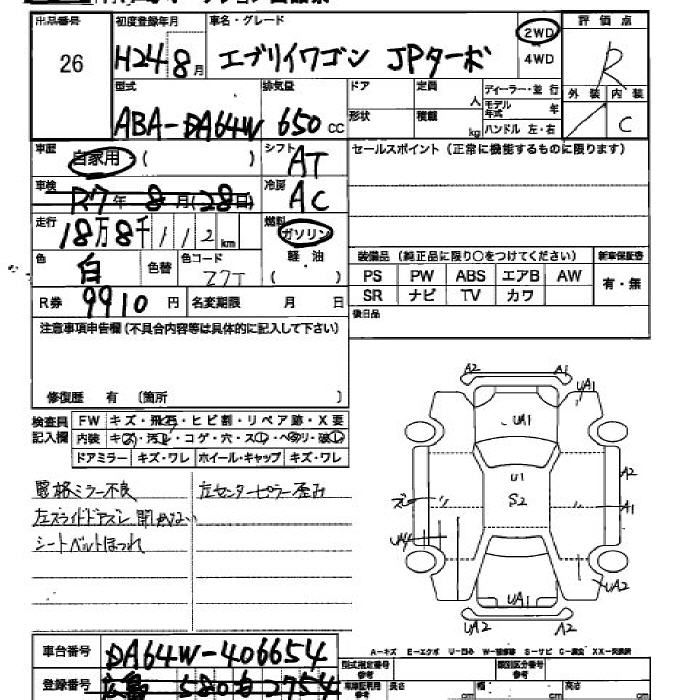 出品番号
26
初度登録年月
H24 8月
車名・グレード
エブリイワゴン JPターボ
2WD
4WD
評価点
R
外装 内装
C
型式
ABA-DA64W
排気量
650 CC
ドア
形状
定員 人
積載 kg
ディーラー・並 行
モデル年式 年
ハンドル 左・右
車歴
自家用 ( )
シフト
AT
セールスポイント (正常に機能するものに限ります)
車検
R7年 8月 (28日)
冷房
AC
走行
18万8千112 km
燃料
ガソリン
軽油
( )
色
白
色替
色コード
Z7T
R券 9910 円
名変期限 月 日
装備品 (純正品に限り○をつけてください)
新車保証書
PS PW ABS エアB AW
SR ナビ TV カワ
有・無
後日品
注意事項申告欄 (不具合内容等は具体的に記入して下さい)
修復歴 有 〔箇所 〕
検査員記入欄
FW キズ・飛石・ヒビ割・リペア跡・X要
内装 キズ・汚レ・コゲ・穴・スレ・ヘタリ・破レ
ドアミラー キズ・ワレ ホイール・キャップ キズ・ワレ
電格ミラー不良
左スライドドアズレ 開かない
シートベルトほつれ
左センターピラー歪み
A2 A1
UA1
UA1
U1
S2
A2
ズレ
A1
UA4
UA2
UA1
UA2 A2
A-キズ E-エクボ U-凹み W-補修跡 S-サビ C-腐食 XX-交換済
車台番号 DA64W-406654
型式指定番号
参考
類別区分番号
参考
登録番号 広島 580 を 2754
長さ cm
幅 cm
高さ cm